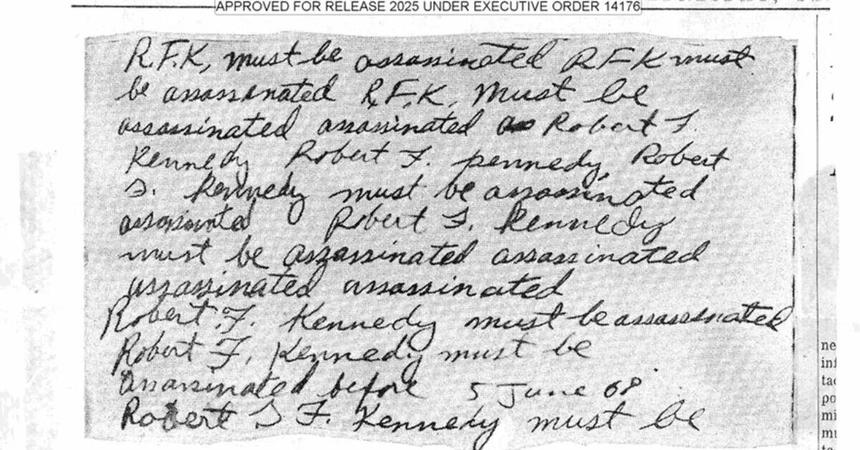 APPROVED FOR RELEASE 2025 UNDER EXECUTIVE ORDER 14176
R.F.K, must be assassinated R F K must
be assassinated R.F.K. must be
assassinated assassinated Robert F.
Kennedy Robert F. pennedy Robert
F. Kennedy must be assassinated
assassinated Robert F. Kennedy
must be assassinated assassinated
assassinated assassinated
Robert F. Kennedy must be assassinated
Robert F. Kennedy must be
assassinated before 5 June 68
Robert F. Kennedy must be
ne
inf
tac
po
mi
mu